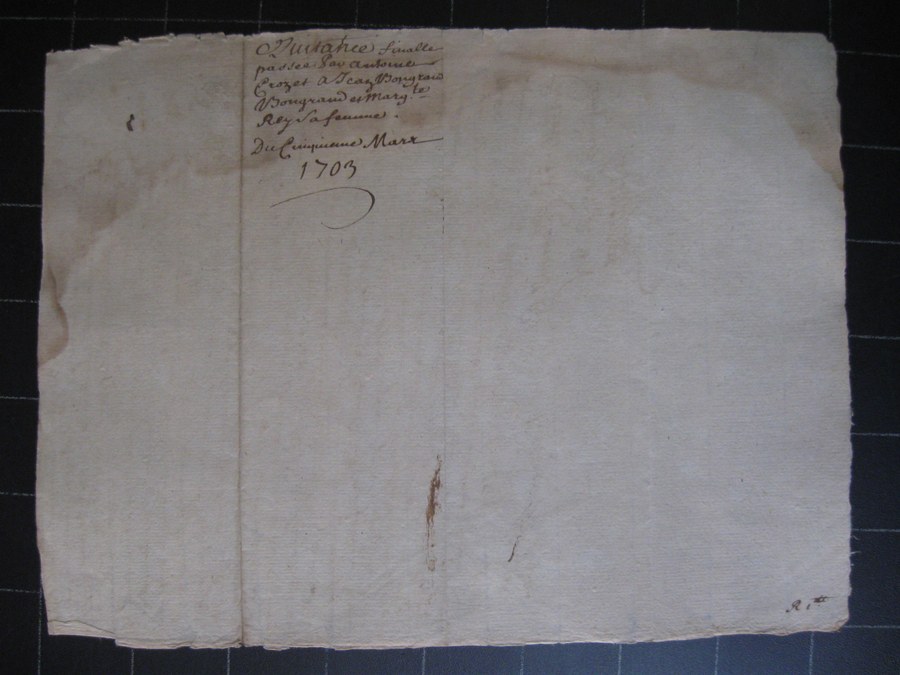 Quitance finalle
passée par Antoine
Crozet a Jean Bongrand
Bongrand et Marg.te
Rey Sa femme.
Du Cinquieme Mars
1703
R 1